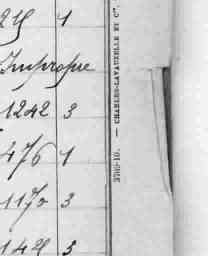 25 1
Impropre
1242 3
476 1
1170 3
142 3
3702-10. — CHARLES-LAVAUZELLE ET Cie.